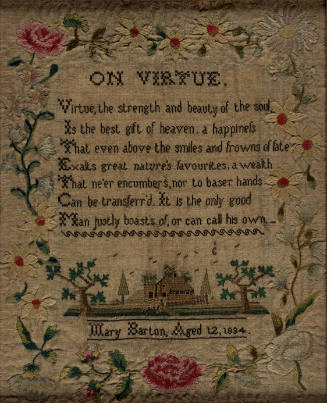 ON VIRTUE.
Virtue, the strength and beauty of the soul,
Is the best gift of heaven, a happineſs
That even above the smiles and frowns of fate
Exalts great nature's favourites, a wealth
That ne'er encumber's, nor to baser hands
Can be transferr'd. It is the only good
Man justly boasts of, or can call his own.
Mary Barton, Aged 12, 1834.